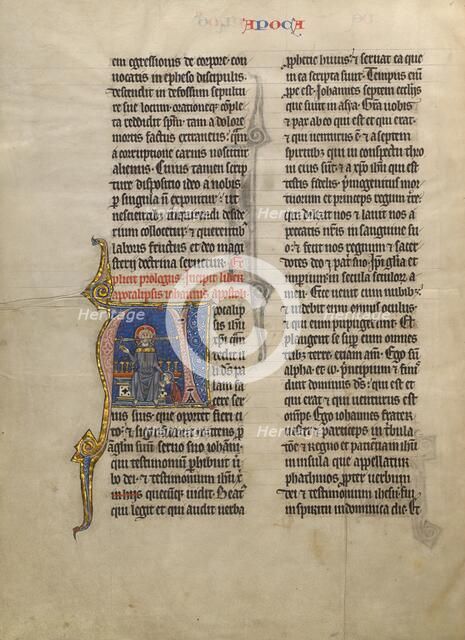 APOCA
em egressionis de corpore con
uocatis in epheso discipulis
descendit in defossum sepultu
re sue locum orationeque comple
ta reddidit spm tam a dolore
mortis factus extraneus qm
a corruptione carnis noscitur
alienus. Cuius tamen scrip
ture dispositio
p singula non exponitur ut
nescientibus inquirendi deside
rium collocetur et querentib
laboris fructus et deo magi
sterii doctrina seruetur. Ex
plicit prologus. incipit liber
apocalipsis iohannis apostoli
Apocalipsis
ihu
xpi
dedit i
lli ds pa
lam fa
cere ser
uis suis que oportet fieri ci
to et significauit mittens p
anglm suum seruo suo iohanni
qui testimonium phibuit ub
bo dei et testimonium ihu x
in hijs quecunq uidit. Beat
qui legit et qui audit uerba
pphetie huius et seruat ea que
in ea scripta sunt. Tempus enim
ppe est. Iohannes septem ecclijs
que sunt in asya. Gra uobis
et pax ab eo qui est et qui erat
et qui uenturus est et a septem
spiritibz qui in conspectu thro
ni eius sunt et a xpo ihu qui est
testis fidelis pmogenitus mor
tuorum et princeps regum terre
qui dilexit nos et lauit nos a
peccatis nris in sanguine su
o et fecit nos regnum et sacer
dotes deo et patri suo. Ipi gloria et
imperium in secula seculorum a
men. Ecce uenit cum nubibz
et uidebit eum omnis oculus
et qui eum pupugerunt. Et
plangent se super eum omnes
tribus terre etiam amen. Ego sum
alpha et w principium et fi
nis dicit dominus ds qui est
et qui erat et qui uenturus est
omnipotens. Ego iohannes frater
uester et particeps in tribula
tione et regno et patientia in ihu
in insula que appellatur
pathmos propter uerbum
dei et testimonium ihesu fui
in spiritu in dominica die. Et
Heritage